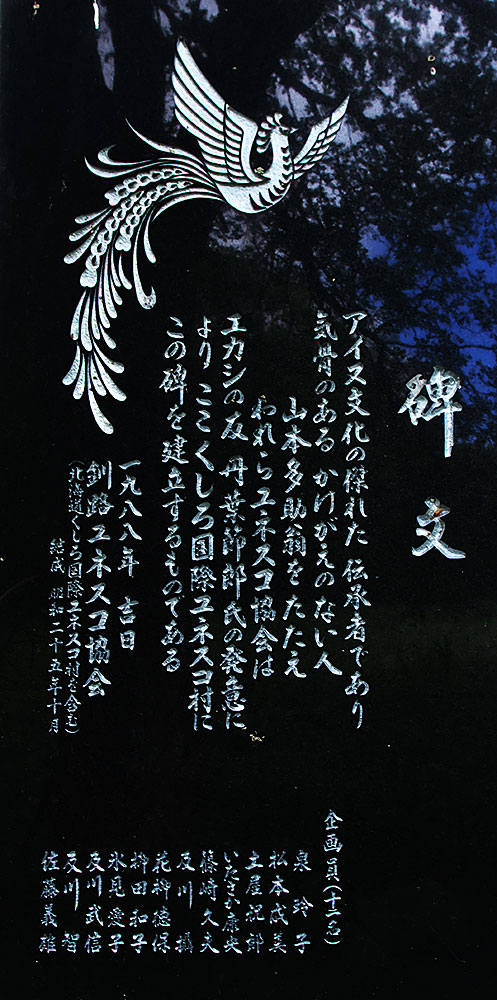 碑文
アイヌ文化の傑れた 伝承者であり
気骨のある かけがえのない人
山本多助翁をたたえ
われらユネスコ協会は
エカシの友 丹葉節郎氏の発意に
より ここくしろ国際ユネスコ村に
この碑を建立するものである
一九八八年 吉日
釧路ユネスコ協会
(北海道くしろ国際ユネスコ村を含む)
結成 昭和二十五年十月
企画員(十二名)
泉 玲子
松本成美
土屋祝郎
いたさか康央
篠崎久夫
及川 攝
花柳徳保
柳田和子
氷見愛子
及川武信
及川 智
佐藤義雄